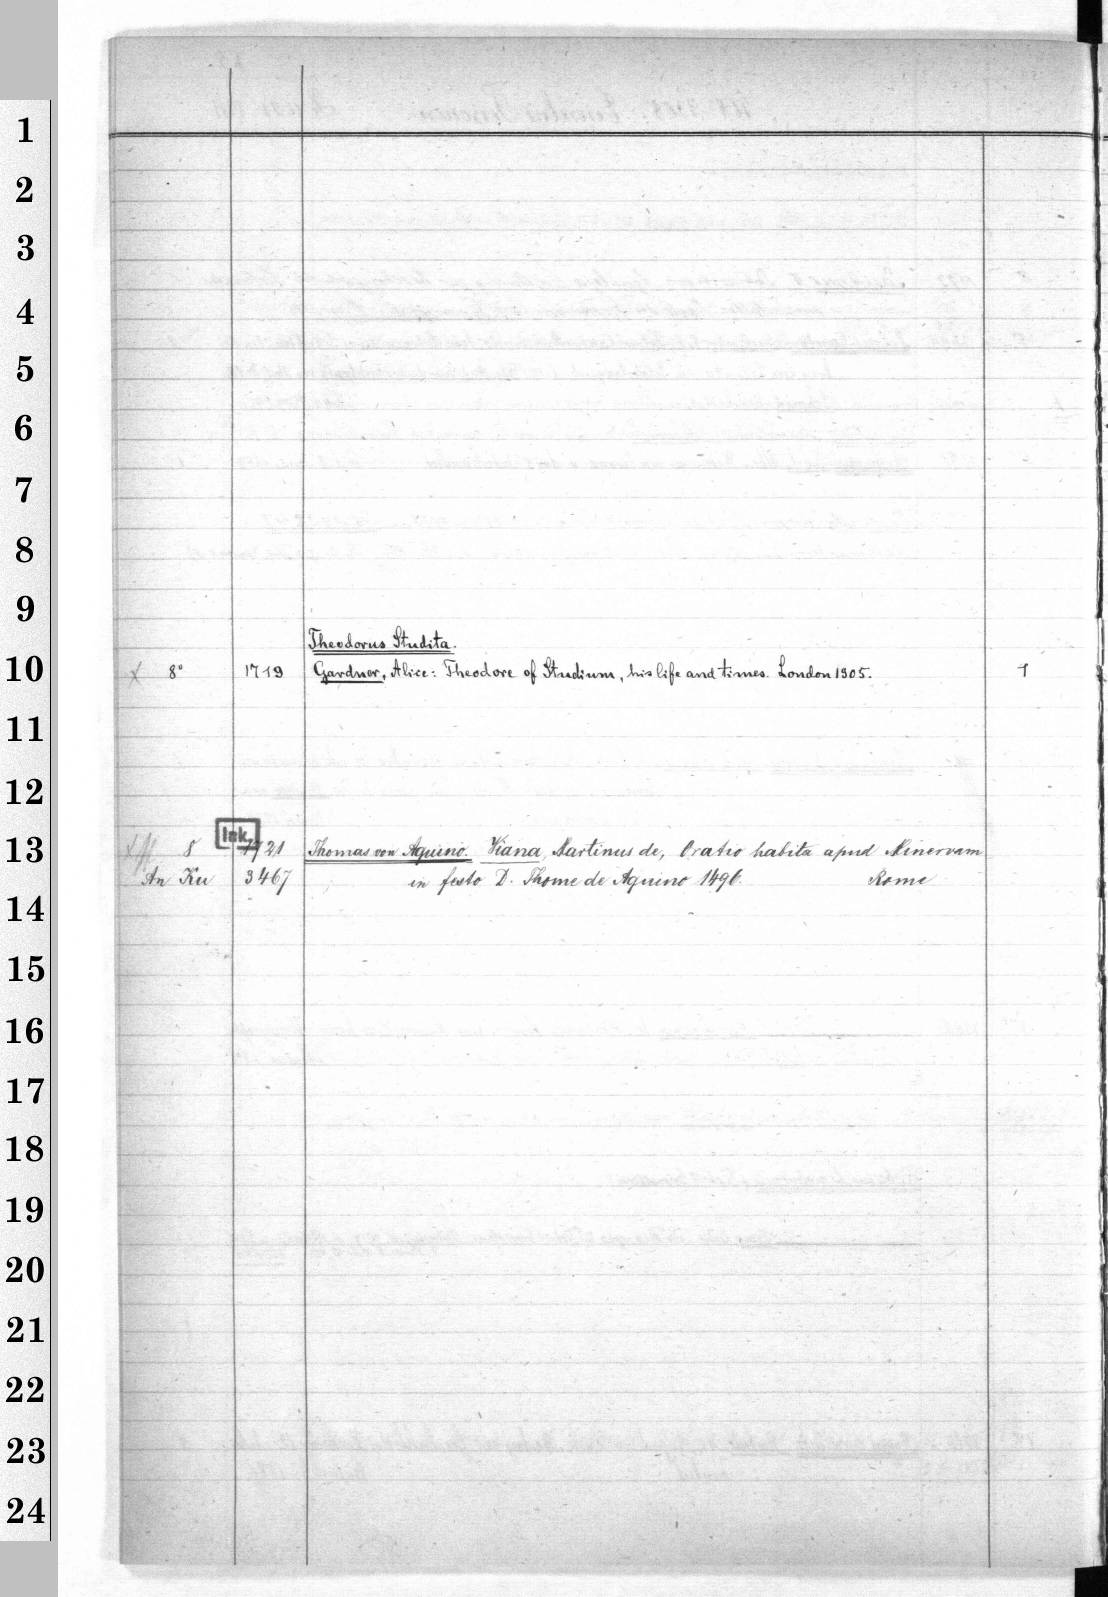 1
2
3
4
5
6
7
8
9
Theodorus Studita.
10 8° 1719 Gardner, Alice: Theodore of Studium, his life and times. London 1905. 1
11
12
Ink.
13 8 1721 Thomas von Aquino. Viana, Martinus de, Oratio habita apud Minervam
An Ku 3467 in festo D. Thome de Aquino 1496. Rome
14
15
16
17
18
19
20
21
22
23
24